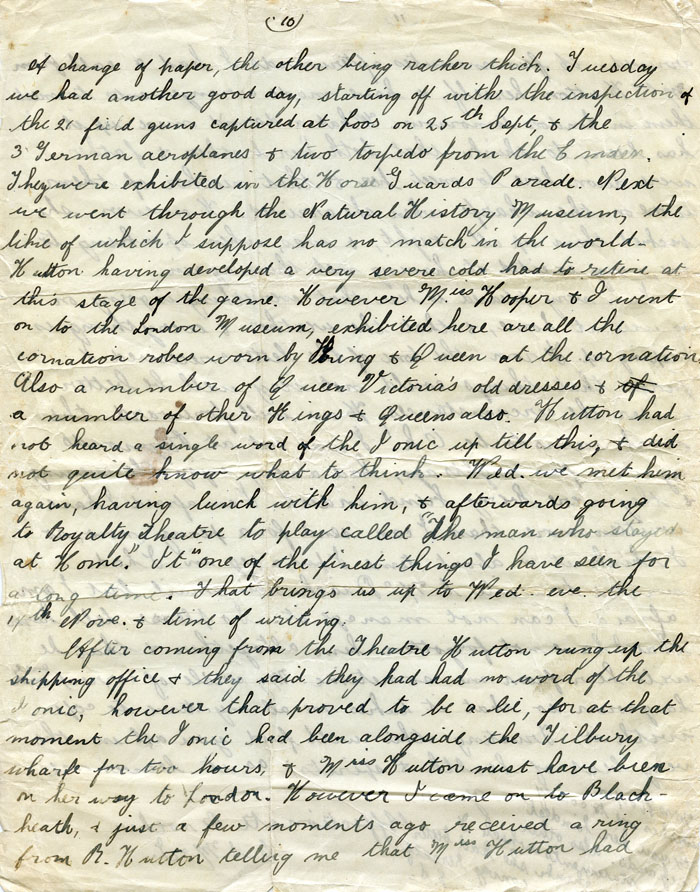 (10)
A change of paper, the other being rather thick. Tuesday
we had another good day, starting off with the inspection of
the 21 field guns captured at Loos on 25th Sept, & the
3 German aeroplanes & two torpedo from the Emden.
They were exhibited in the Horse Guards Parade. Next
we went through the Natural History Museum, the
like of which I suppose has no match in the world-
Hutton having developed a very severe cold had to retire at
this stage of the game. However Miss Hooper & I went
on to the London Museum, exhibited here are all the
cornation robes worn by King & Queen at the cornation.
Also a number of Queen Victoria's old dresses & of
a number of other Kings & Queens also. Hutton had
not heard a single word of the Ionic up till this, & did
not quite know what to think. Wed. we met him
again, having lunch with him, & afterwards going
to Royalty Theatre to play called "The man who stayed
at Home". It "one of the finest things I have seen for
a long time. That brings us up to Wed. eve. the
17th Nove. & time of writing.
After coming from the Theatre Hutton rung up the
shipping office & they said they had had no word of the
Ionic, however that proved to be a lie, for at that
moment the Ionic had been alongside the Tilbury
wharfe for two hours, & Miss Hutton must have been
on her way to London. However I came on to Black-
heath, & just a few moments ago received a ring
from R. Hutton telling me that Miss Hutton had